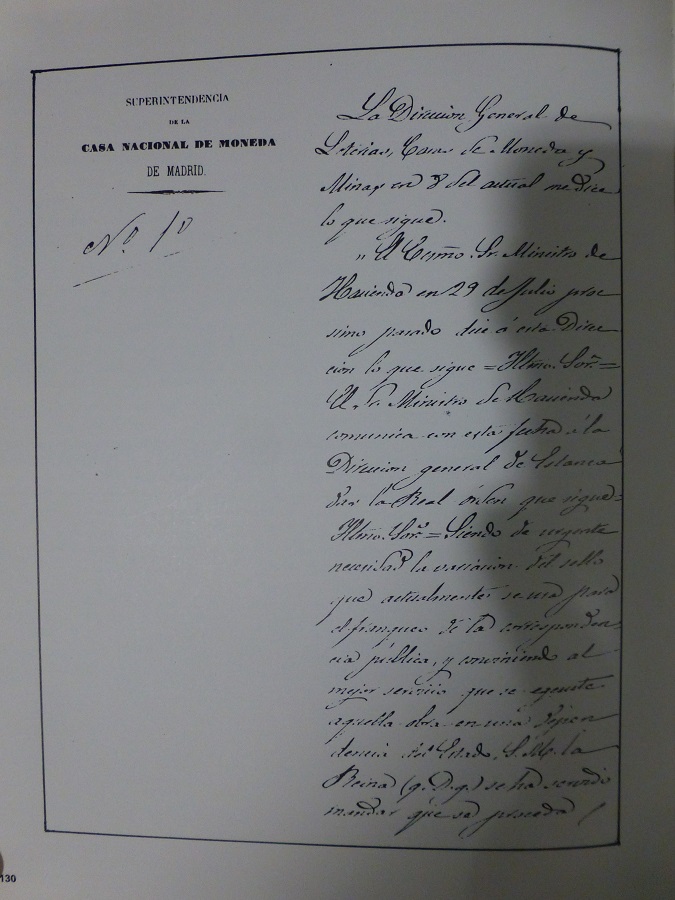 SUPERINTENDENCIA
DE LA
CASA NACIONAL DE MONEDA
DE MADRID.
Nº 1º
La Direccion General de
Loterias, Casas de Moneda y
Minas, en 8 del actual me dice
lo que sigue.
„ El Excmo. Sr. Ministro de
Hacienda en 29 de Julio proc
simo pasado dice á esta Direc
cion lo que sigue = Iltmo. Sor. =
El Sr. Ministro de Hacienda
comunica con esta fecha á la
Direccion general de Estanca
das la Real órden que sigue =
Iltmo. Sor. = Siendo de urgente
necesidad la variacion del sello
que actualmente se usa para
el franqueo de la corresponden
cia pública, y conviniendo al
mejor servicio que se egecute
aquella obra en una depen
dencia del Estado, S. M. la
Reina (q. D. g.) se ha servido
mandar que se proceda
130